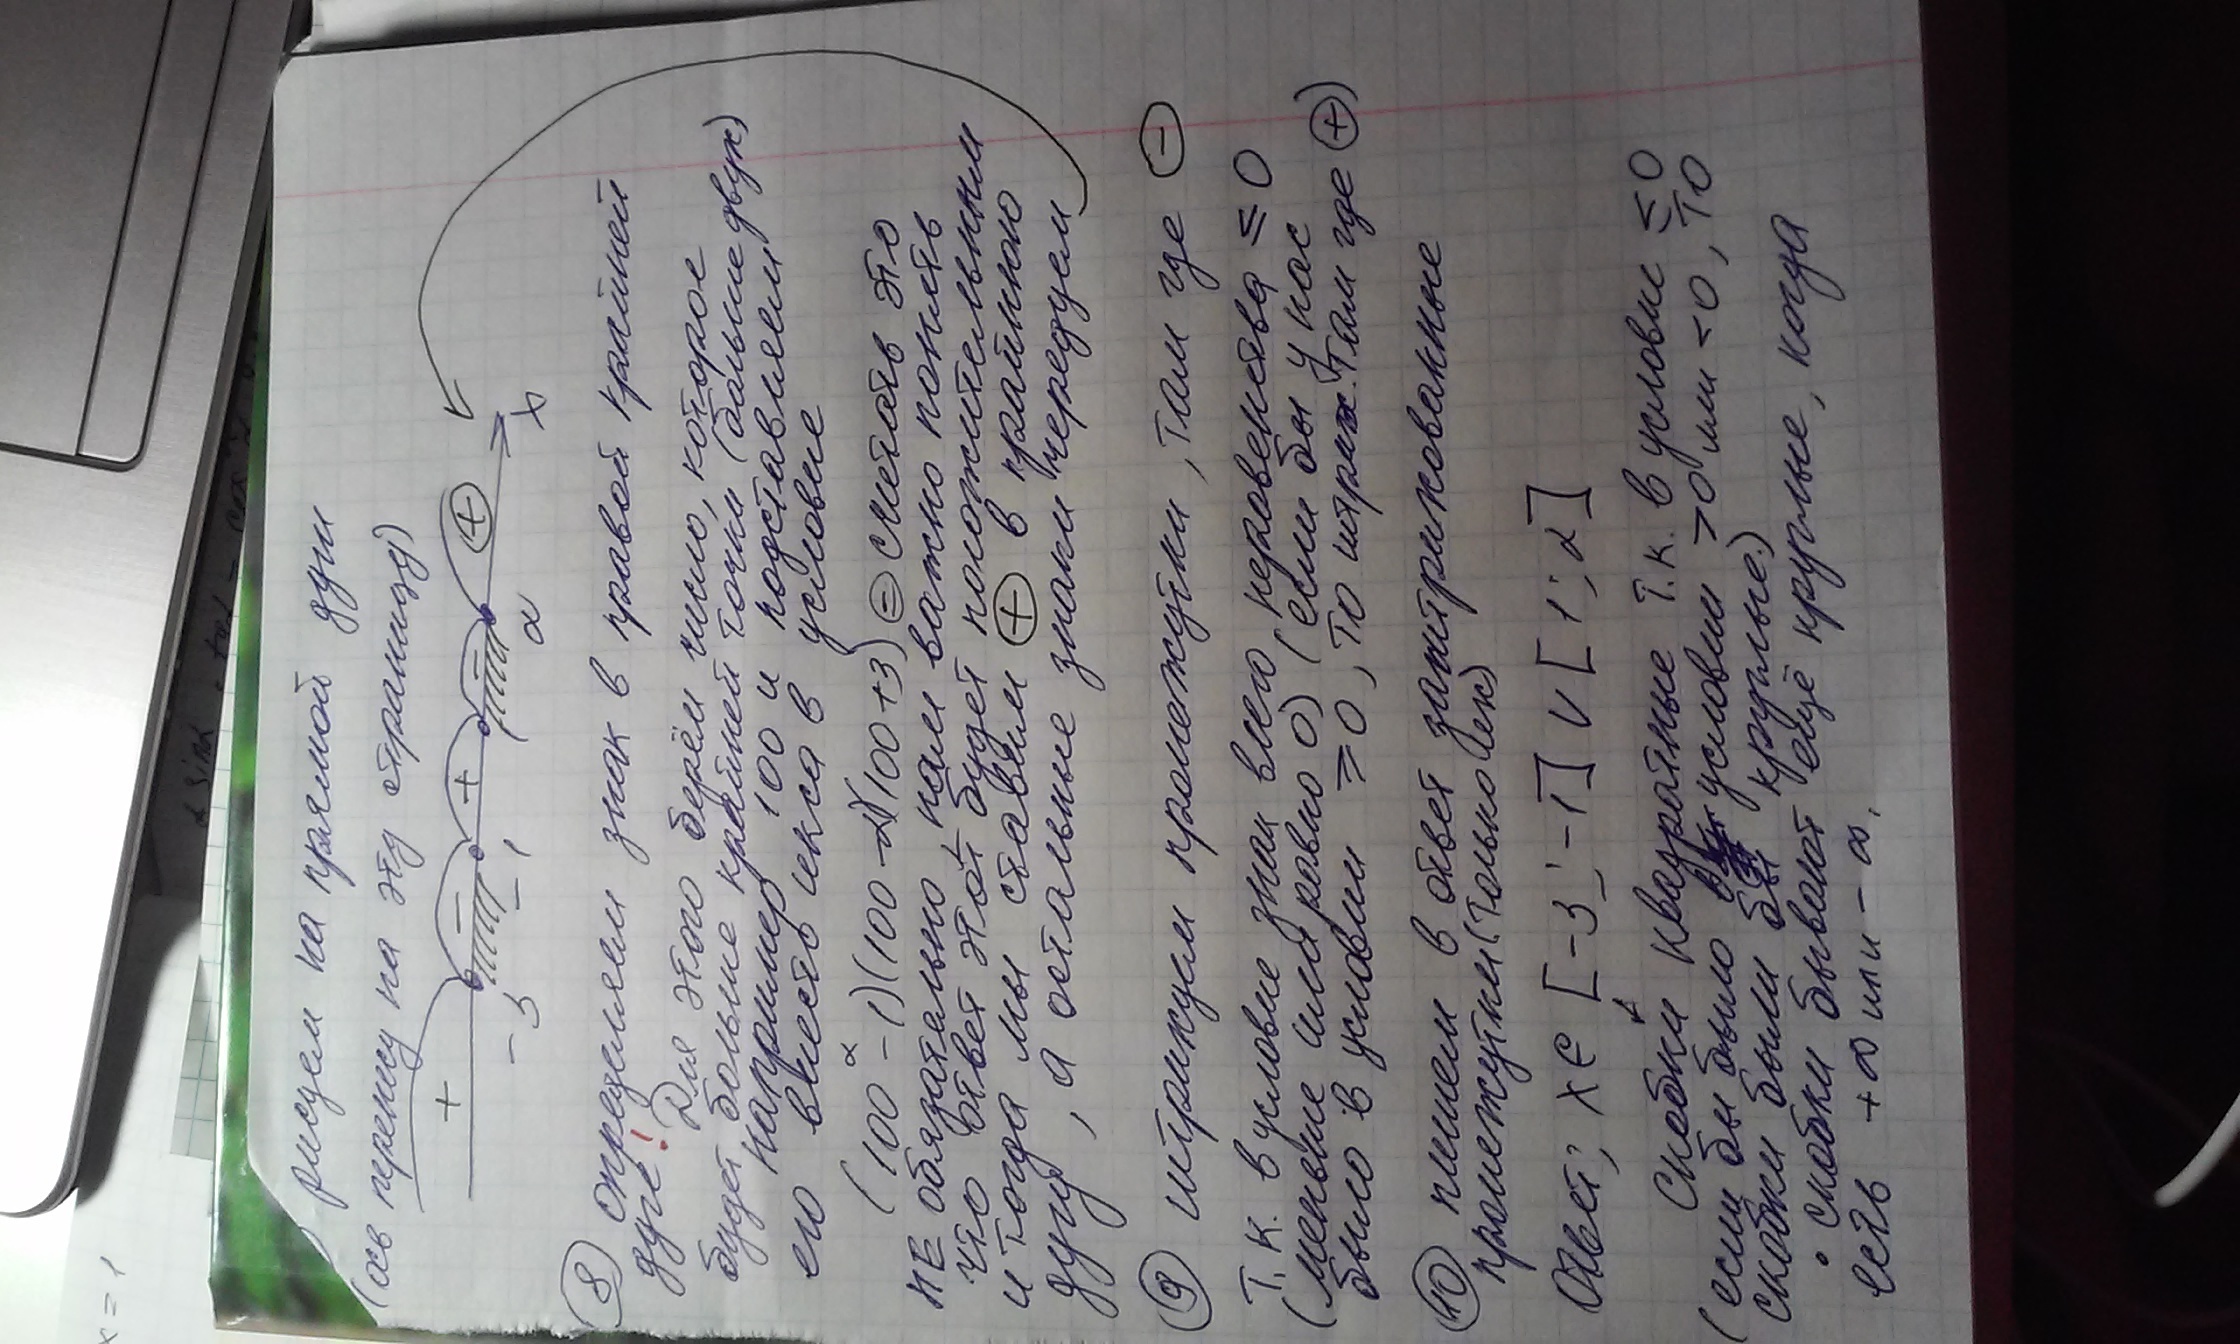 рисуем на прямой дуги
(ось перенесу на эту страницу)
+ − + − +
-3 -1 1 2 x
8 определяем знак в правой крайней
дуге! Для этого берём число, которое
будет больше крайней точки (больше двух)
например 100 и подставляем
его вместо икса в условие
(100² - 1)(100 - 2)(100 + 3) = считать это
НЕ обязательно, нам важно понять
что ответ этот будет положительным
и тогда мы ставим + в крайнюю
дугу, а остальные знаки чередуем
9 штрихуем промежутки, там где −
Т.К. в условие знак всего неравенства ≤ 0
(меньше или равно 0) (если бы у нас
было в условии ≥ 0, то штрих. там где +)
10 пишем в ответ заштрихованные
промежутки (только их)
Ответ: x ∈ [-3; -1] ∨ [1; 2]
Скобки квадратные т.к. в условие ≤0
(если бы было в условии >0 или <0, то
скобки были бы круглые.)
• скобки бывают ещё круглые, когда
есть +∞ или -∞.
x = 1